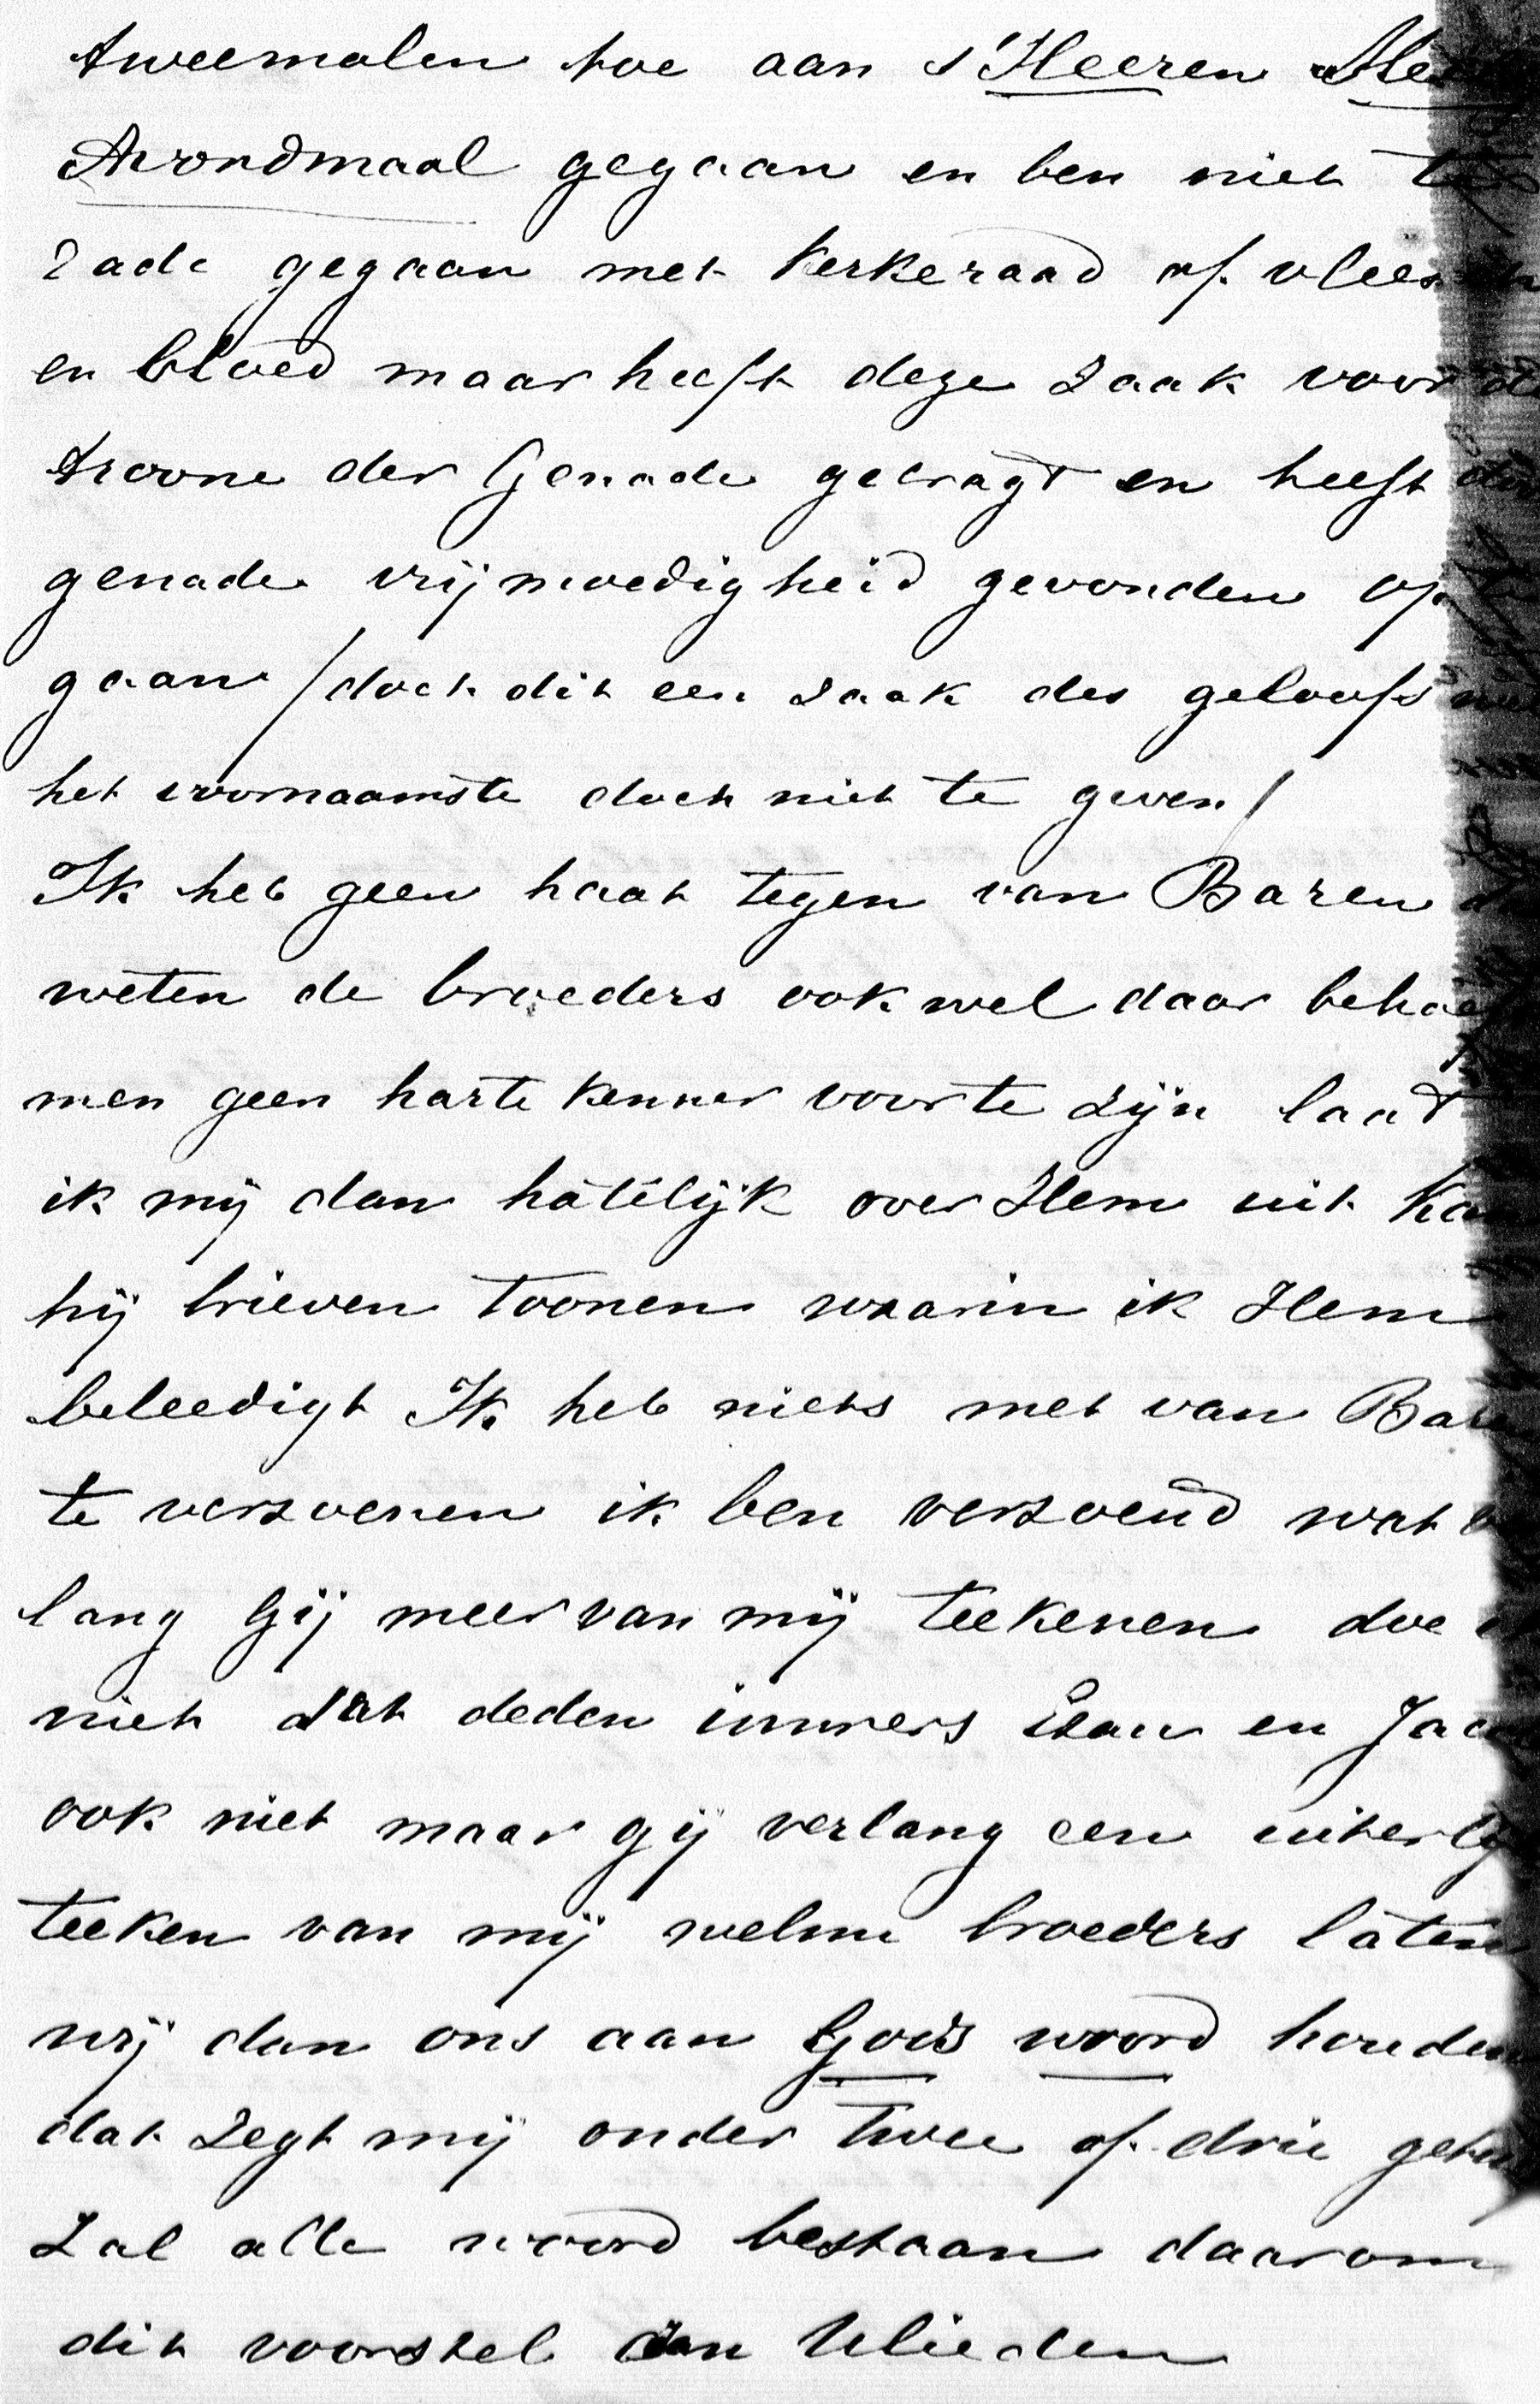 tweemalen toe aan s'Heeren
Avondmaal gegaan en ben niet te
rade gegaan met Kerkeraad of vleesch
en bloed maar heeft deze zaak voor de
troone der Genade gebragt en heeft door
genade vrijmoedigheid gevonden op te
gaan /doch dit een zaak des geloofs
het voornaamste doch niet te geven/
Ik heb geen haat tegen van Baren
weten de broeders ook wel daar behoef
men geen harte kenner voor te zijn laat
ik mij dan hatelijk over Hem uit Kan
hij brieven toonen waarin ik Hem
beleedigt Ik heb niets met van Baren
te verzoenen ik ben verzoend wat
lang Gij meer van mij teekenen doe ik
niet dat deden immers Esau en Jacob
ook niet maar gij verlang een uiterlijk
teeken van mij welnu broeders laten
wij dan ons aan Gods woord houden
dat zegt mij onder twee of drie getuigen
Zal alle woord bestaan daarom
dit voorstel aan Ulieden